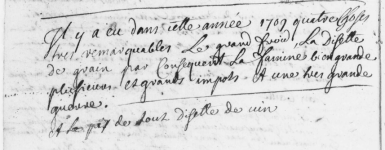 Il y a eu dans cette année 1709 quatre choses
tres remarquables Le grand froid, La disette
de grain par Consequent La famine bien grande
plusieurs et grands impots. et une tres grande
guerre.
et la pis de tout disette de vin